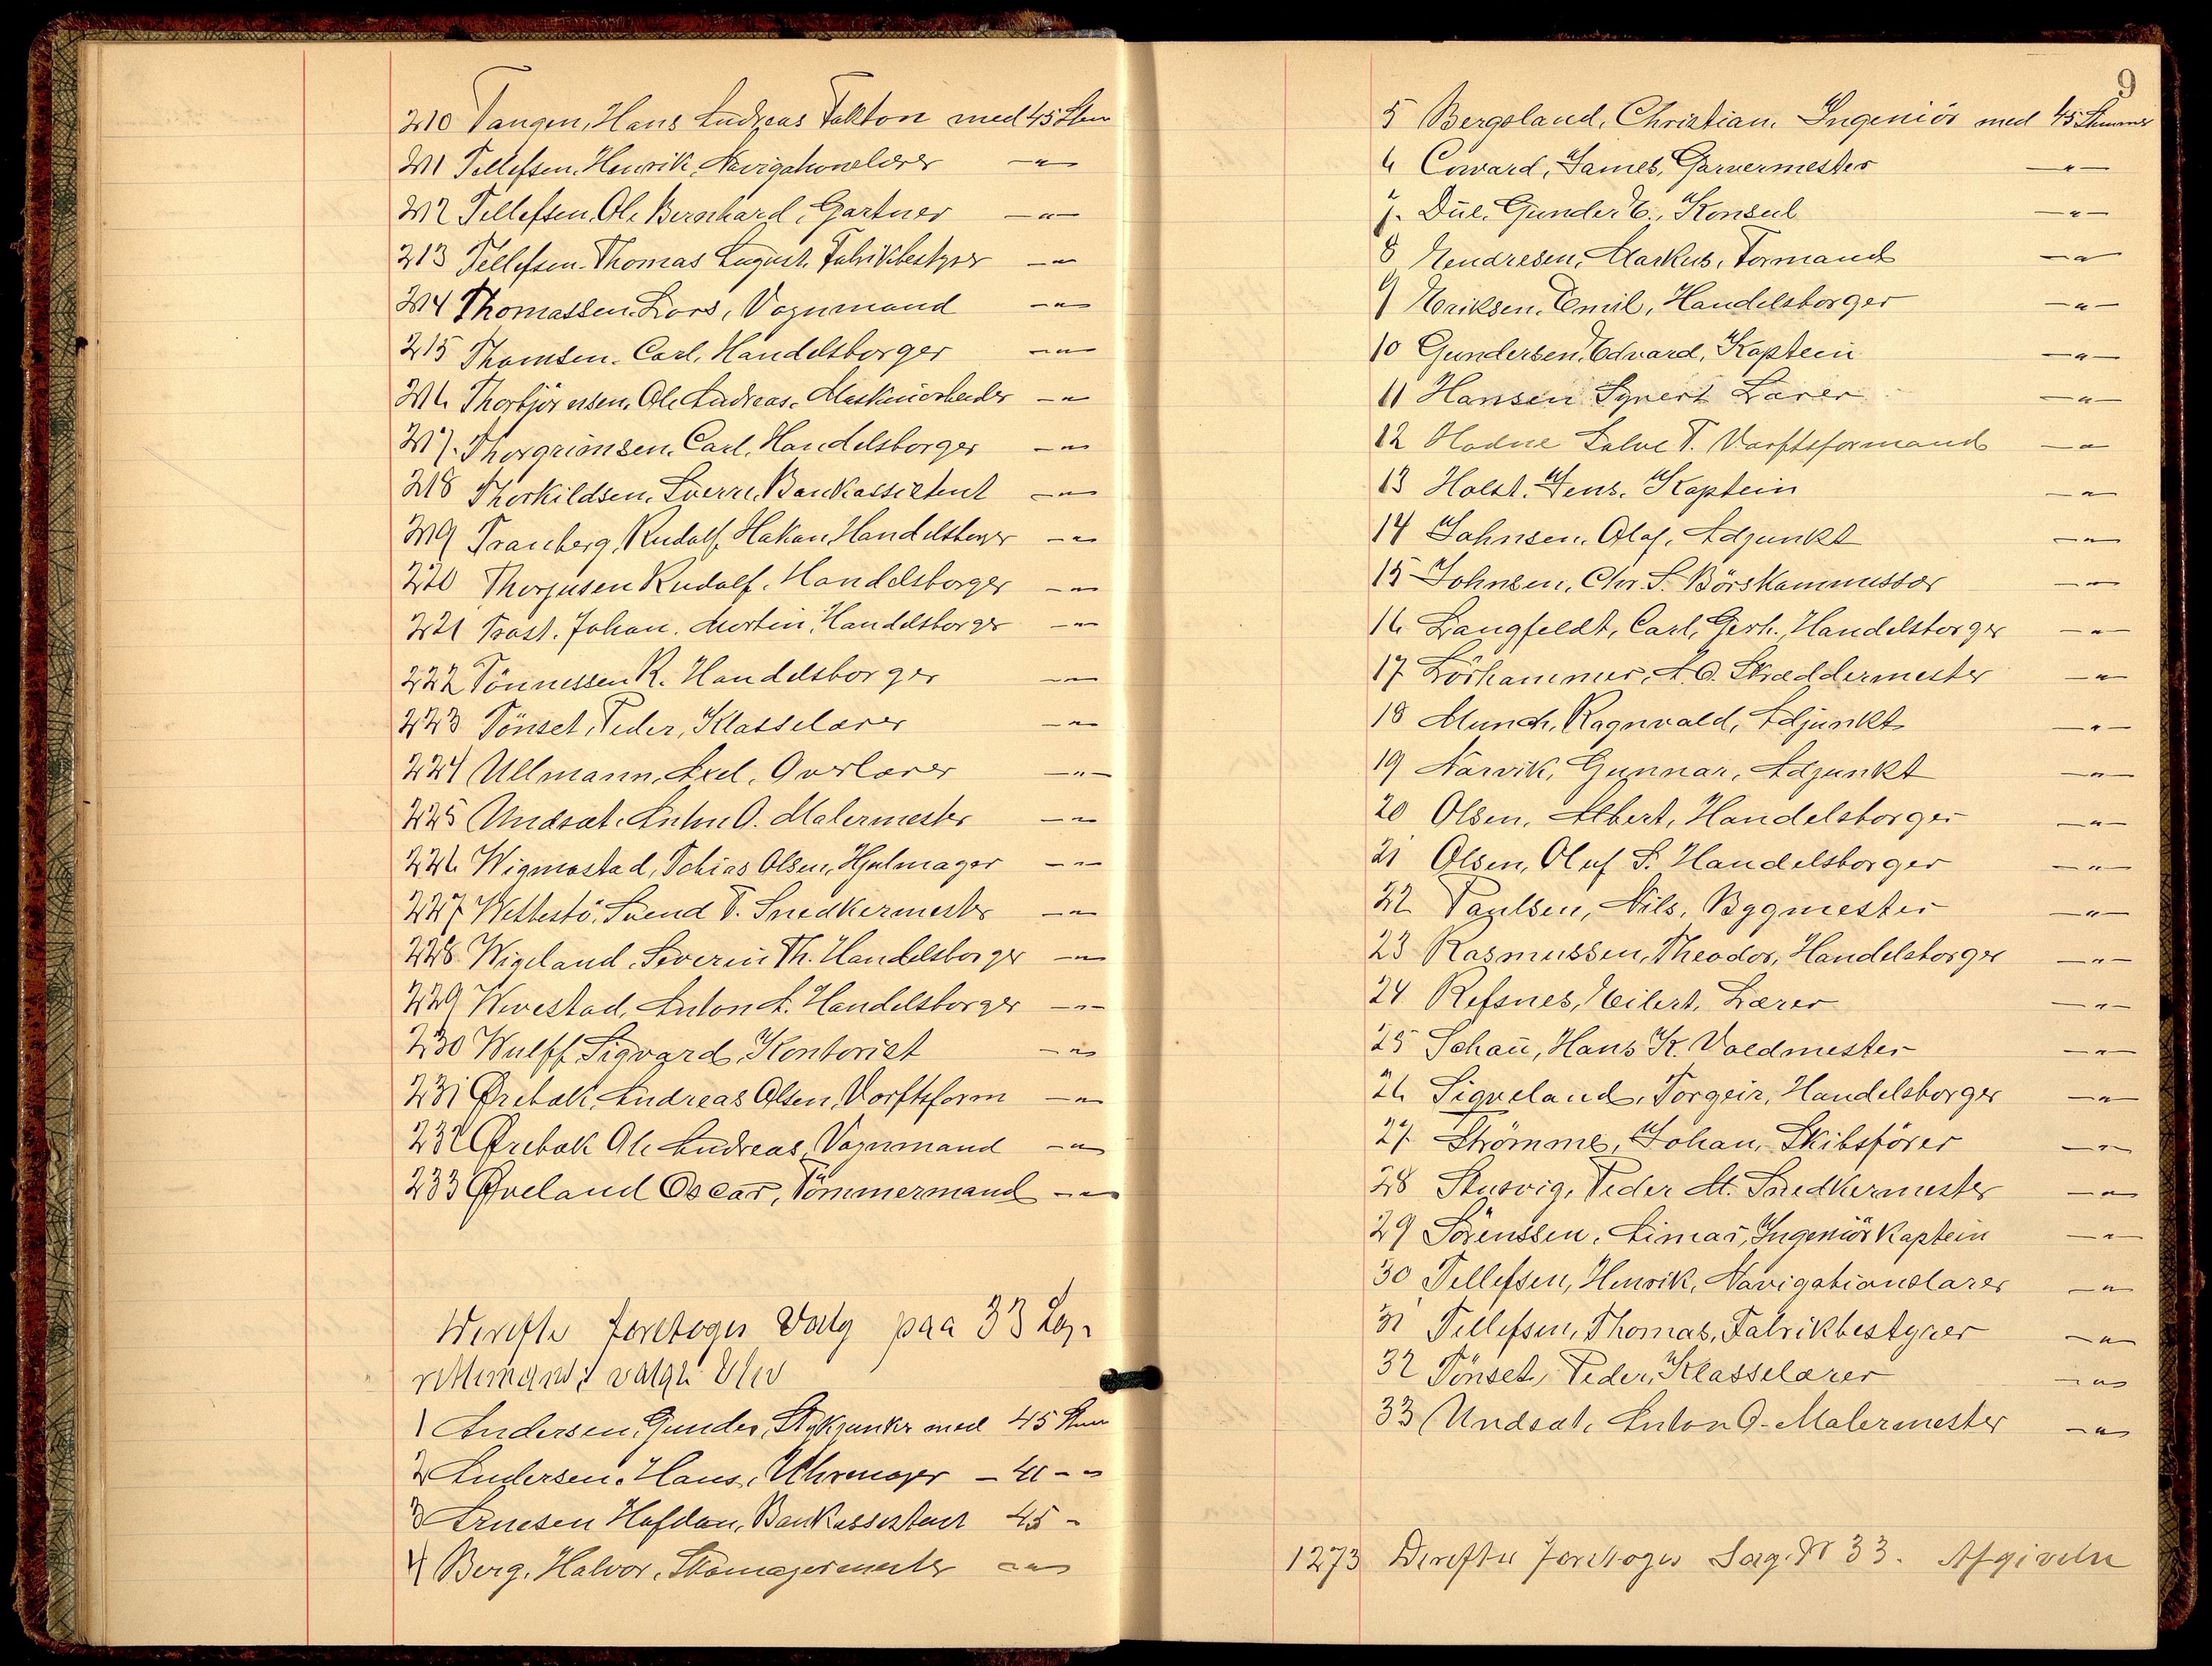 210 Tangen, Hans Andreas Faktor med 45 Stem
211 Tellefsen, Henrik, Navigationslærer —"—
212 Tellefsen, Ole Bernhard, Gartner —"—
213 Tellefsen, Thomas August, Fabrikbestyrer —"—
214 Thomassen, Lars, Vognmand —"—
215 Thomsen, Carl, Handelsborger —"—
216 Thorbjörnsen, Ole Andreas, Maskinarbeider —"—
217. Thorgrimsen, Carl, Handelsborger —"—
218 Thorkildsen, Sverre, Bankassistent —"—
219 Tranberg, Rudolf Hakan, Handelsborger —"—
220 Thorjusen Rudolf, Handelsborger —"—
221 Trast, Johan, Martin, Handelsborger —"—
222 Tönnessen R. Handelsborger —"—
223 Tönset, Peder, Klasselærer —"—
224 Ullmann, Axel, Overlærer —"—
225 Undsat, Anton O. Malermester —"—
226 Wigmostad, Tobias Olsen, Hjulmager —"—
227 Svend T. Snedkermester —"—
228 Wigeland, Severin Th. Handelsborger —"—
229 Wivestad, Anton A. Handelsborger —"—
230 Wulff, Sigvard, Kontorist —"—
231 Ørebæk, Andreas Olsen, Værftsform —"—
232 Ørebæk Ole Andreas, Vognmand —"—
233 Øveland Oscar, Tömmermand —"—
Derefter foretoges Valg paa 33 Lag-
rettemænd; valgte blev
1 Andersen, Gunder, Stykjunker med 45 Stem
2 Andersen, Hans, Uhrmager — 41 — "
3 Arnesen Halfdan, Bankassistent 45 -
4 Berg, Halvor, Skomagermester —"—
9
5 Bergsland, Christian, Ingeniör med 45 Stemmer
6 Coward, James, Garvermester —"—
7. Due, Gunder E., Konsul —"—
8 Endresen, Markus, Formand —"—
9 Eriksen, Emil, Handelsborger —"—
10 Gundersen, Edvard, Kaptein —"—
11 Hansen Syvert Lærer —"—
12 Hodne Salve T. Værftsformand —"—
13 Holst, Jens, Kaptein —"—
14 Johnsen, Olaf, Adjunkt —"—
15 Johnsen, Chr. S. Börskommissær —"—
16 Langfeldt, Carl, Gerh. Handelsborger —"—
17 Lörhammer, A. O. Skræddermester —"—
18 Munch, Ragnvald, Adjunkt —"—
19 Narvik, Gunnar, Adjunkt —"—
20 Olsen, Albert, Handelsborger —"—
21 Olsen, Oluf S. Handelsborger —"—
22 Paulsen, Nils, Bygmester —"—
23 Rasmussen, Theodor, Handelsborger —"—
24 Refsnes, Eilert, Lærer —"—
25 Schau, Hans K. Voldmester —"—
26 Sigveland, Torgeir, Handelsborger —"—
27. Strömme, Johan, Skibsförer —"—
28 Stusvig, Peder M. Snedkermester —"—
29 Sörenssen, Aimar, Ingeniörkaptein —"—
30 Tellefsen, Henrik, Navigationslærer —"—
31 Tellefsen, Thomas, Fabrikbestyrer —"—
32 Tönset, Peder, Klasselærer —"—
33 Undsat, Anton O. Malermester —"—
1273 Derefter foretoges Sag Nr 33. Afgivelse